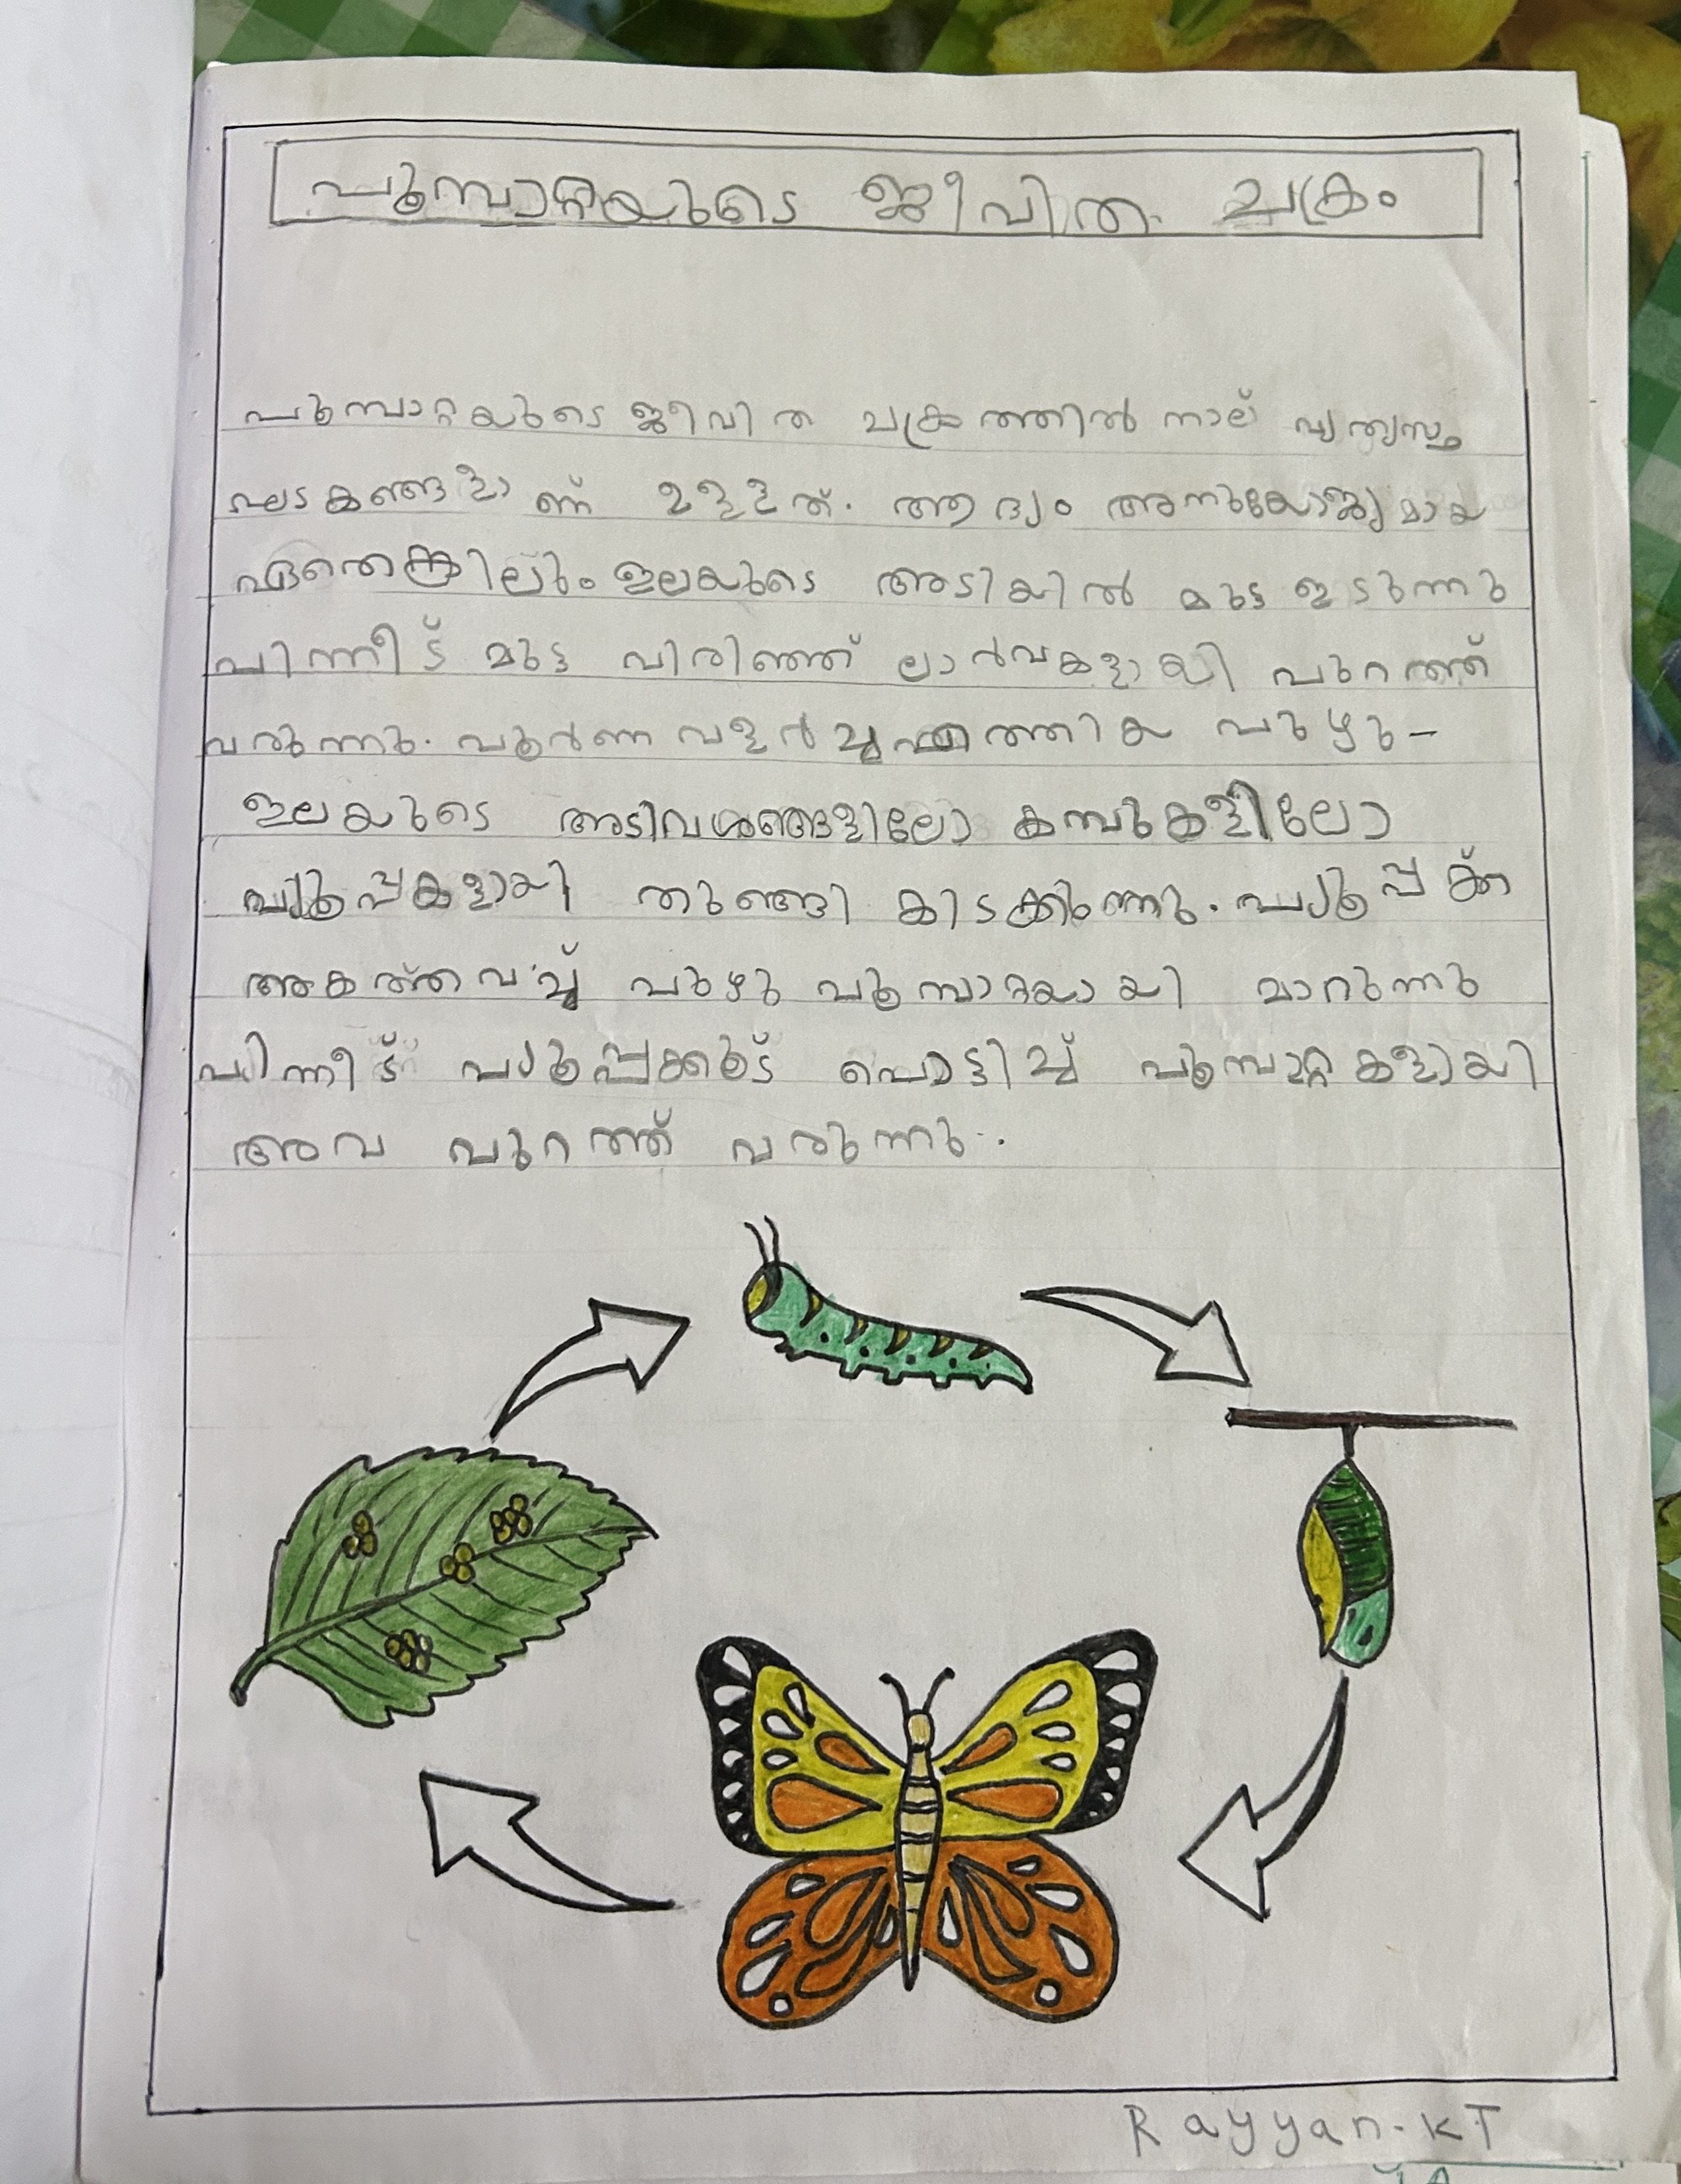 പൂമ്പാറ്റയുടെ ജീവിത ചക്രം
പൂമ്പാറ്റയുടെ ജീവിത ചക്രത്തിൽ നാല് വ്യത്യസ്ഥ
ഘടകങ്ങളാണ് ഉള്ളത്. ആദ്യം അനുയോജ്യമായ
ഏതെങ്കിലും ഇലയുടെ അടിയിൽ മുട്ട ഇടുന്നു
പിന്നീട് മുട്ട വിരിഞ്ഞ് ലാർവകളായി പുറത്ത്
വരുന്നു. പൂർണ വളർച്ചഎത്തിയ പുഴു-
ഇലയുടെ അടിവശങ്ങളിലോ കമ്പുകളിലോ
പ്യൂപ്പകളായി തൂങ്ങി കിടക്കുന്നു. പ്യൂപ്പക്ക്
അകത്തവച്ച് പുഴു പൂമ്പാറ്റയായി മാറുന്നു
പിന്നീട് പ്യൂപ്പക്കൂട് പൊട്ടിച്ച് പൂമ്പാറ്റകളായി
അവ പുറത്ത് വരുന്നു..
Rayyan-KT